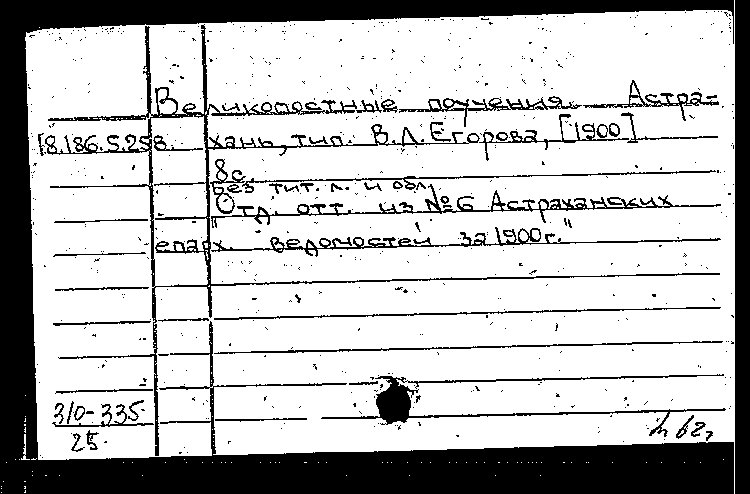 Великопостные поучения. Астра=
18.186.5.258. хань, тип. В.Л. Егорова, [1900].
8с.
Без тит. л. и обл.
"Отд. отт. из №6 Астраханских
епарх. ведомостей за 1900г."
310-335
25.